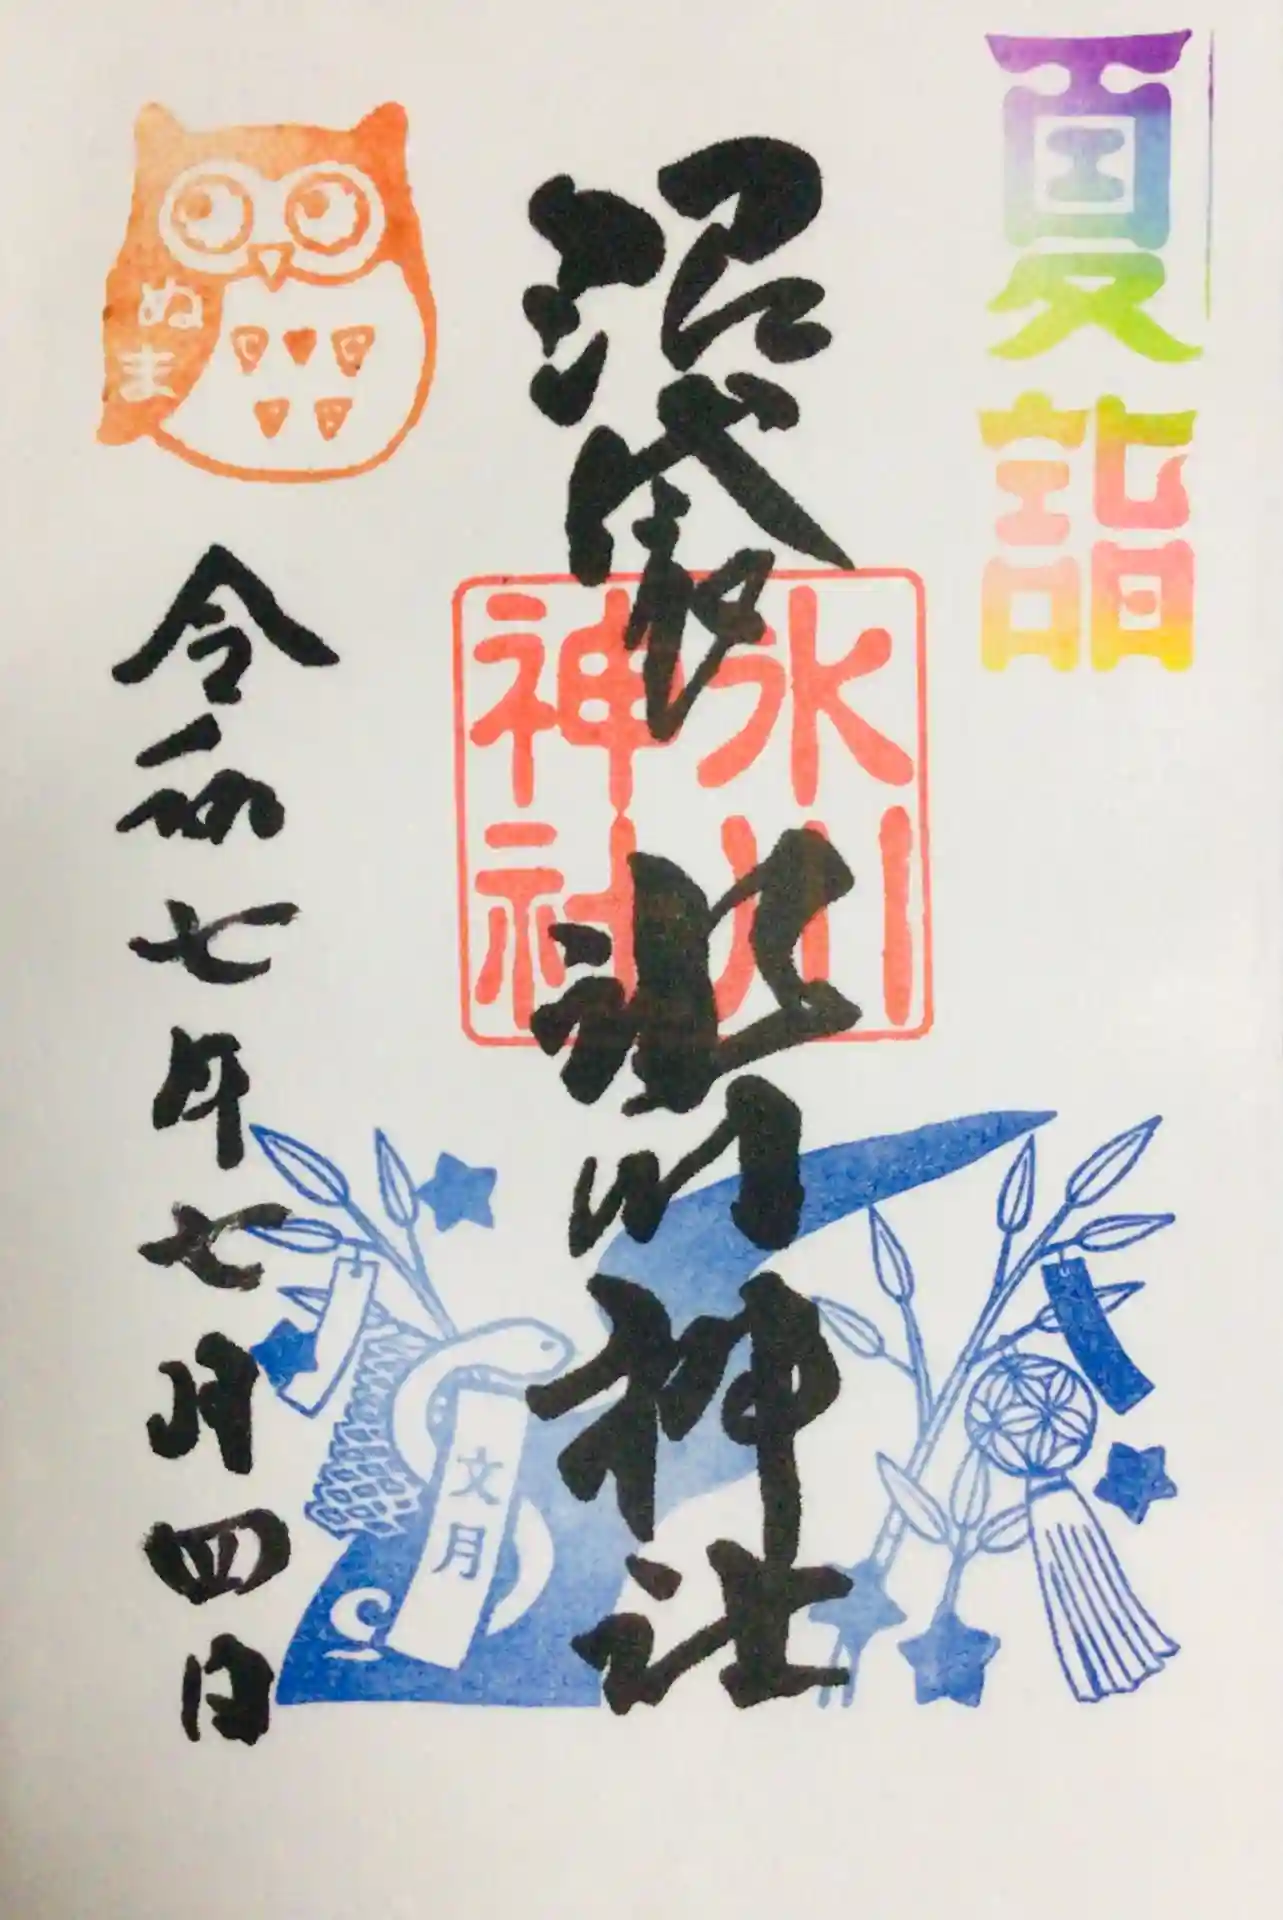 夏詣
沼袋
氷川神社
氷川
神社
ぬま
令和七年七月四日
文月